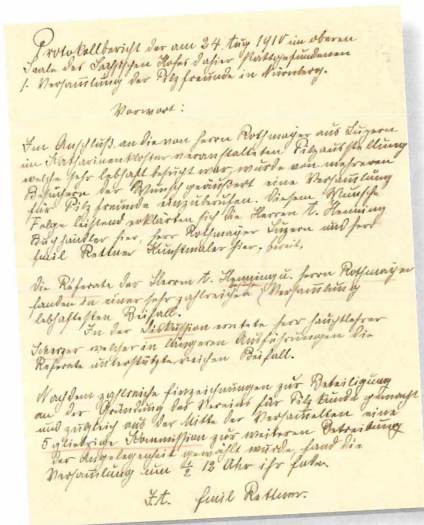 Protokollbericht der am 24. Aug 1910 im oberen
Saale des Sächsischen Hofes dahier stattgefundenen
1. Versam̅lung der Pilzfreunde in Nürnberg.
Vorwort:
Im Anschluß an die von Herrn Rothmayer aus Luzern
im Katharinenkloster veranstalteten Pilzausstellung
welche sehr lebhaft besucht war, wurde von mehreren
Besuchern der Wunsch geäußert eine Versam̅lung
für Pilzfreunde einzuberufen. Diesem Wunsche
Folge leistend erklärten sich die Herren A. Henning
Buchhändler hier, Herr Rothmayer Luzern und Herr
Emil Rettner Kunstmaler hier, bereit.
Die Referate der Herren A. Henning u. Herrn Rothmayer
fanden in einer sehr zahlreichen Versam̅lung
lebhaftesten Beifall.
In der Diskussion erntete Herr Hauptlehrer
Scherzer welcher in längeren Ausführungen die
Referate unterstützte reichen Beifall.
Nachdem zahlreiche Einzeichnungen zur Beteiligung
an der Gründung des Vereins für Pilzkunde gemacht
und zugleich aus der Mitte der Versam̅elten eine
5 gliedrige Kommission zur weiteren Betreibung
der Angelegenheit gewählt wurde, fand die
Versam̅lung um ½ 12 Uhr ihr Ende.
I.A. Emil Rettner.